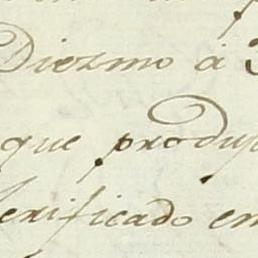 Diezmo á
que produj
Verificado en